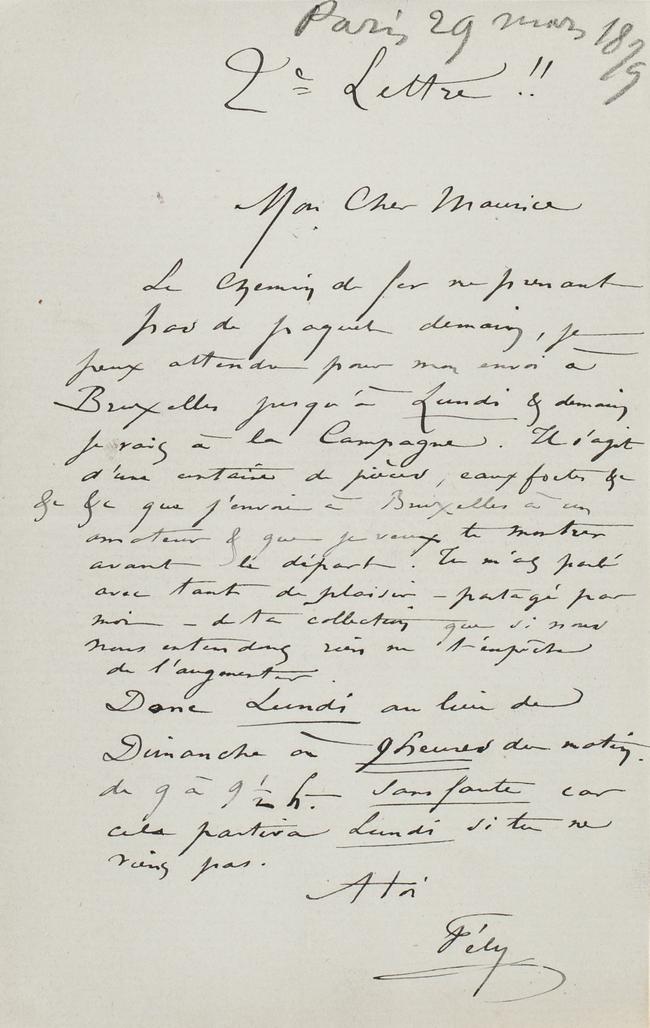 Paris 29 mars 1879
2e Lettre !!
Mon Cher Maurice
Le Chemin de fer ne prenant
pas de paquet demain, je
peux attendre pour mon envoi à
Bruxelles jusqu'à Lundi & demain
je vais à la Campagne. Il s'agit
d'une centaine de pièces, eaux fortes &c
&c &c que j'envoie à Bruxelles à un
amateur & que je veux te montrer
avant le départ. Tu m'as parlé
avec tant de plaisir – partagé par
moi – de ta collection que si nous
nous entendons rien ne t'empêche
de l'augmenter.
Donc Lundi au lieu de
Dimanche à 9 heures du matin.
de 9 à 9 1/2 h. sans faute car
cela partira Lundi si tu ne
viens pas.
A toi
Fély